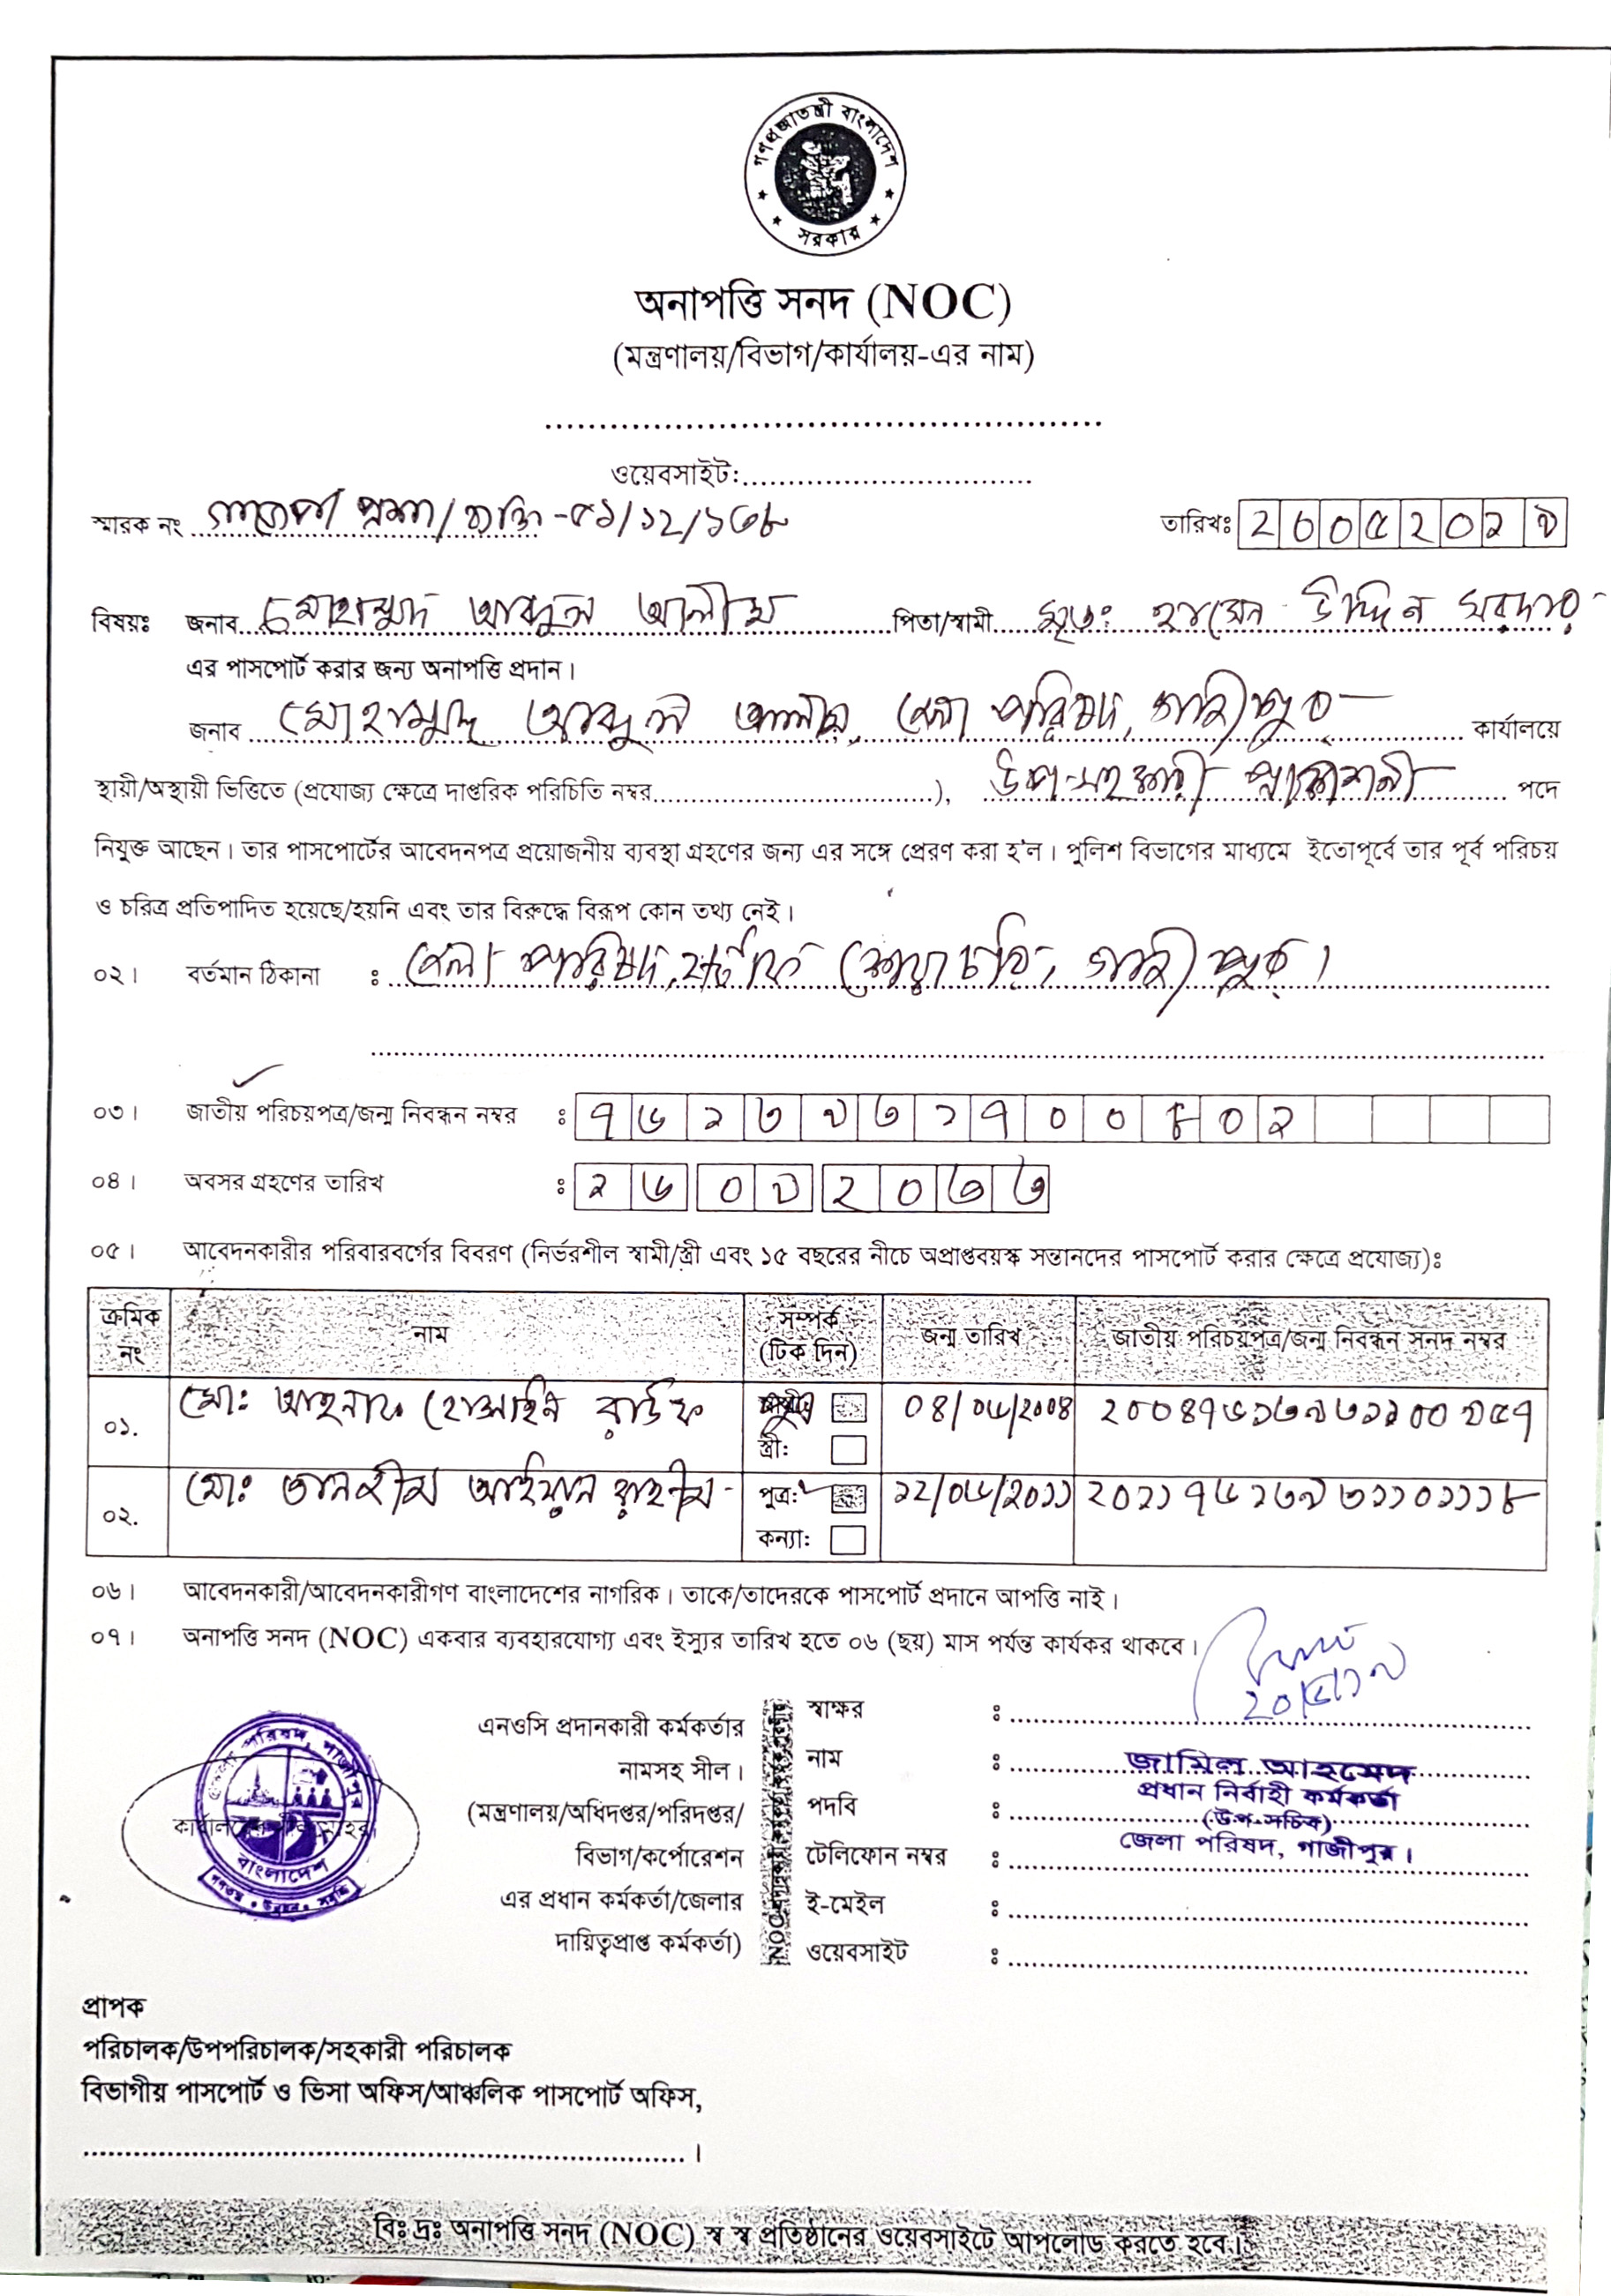 গণপ্রজাতন্ত্রী বাংলাদেশ
সরকার
অনাপত্তি সনদ (NOC)
(মন্ত্রণালয়/বিভাগ/কার্যালয়-এর নাম)
ওয়েবসাইট:
স্মারক নং
তারিখঃ
বিষয়ঃ জনাব মোহাম্মদ আব্দুল আলীম পিতা/স্বামী মৃতঃ উদ্দিন সরদার
এর পাসপোর্ট করার জন্য অনাপত্তি প্রদান।
জনাব মোহাম্মদ আব্দুল আলীম, জেলা পরিষদ, গাজীপুর কার্যালয়ে
স্থায়ী/অস্থায়ী ভিত্তিতে (প্রযোজ্য ক্ষেত্রে দাপ্তরিক পরিচিতি নম্বর), উপ-সহকারী প্রকৌশলী পদে
নিযুক্ত আছেন। তার পাসপোর্টের আবেদনপত্র প্রয়োজনীয় ব্যবস্থা গ্রহণের জন্য এর সঙ্গে প্রেরণ করা হ'ল। পুলিশ বিভাগের মাধ্যমে ইতোপূর্বে তার পূর্ব পরিচয়
ও চরিত্র প্রতিপাদিত হয়েছে/হয়নি এবং তার বিরুদ্ধে বিরূপ কোন তথ্য নেই।
০২। বর্তমান ঠিকানা ঃ জেলা পরিষদ, গাজীপুর।
০৩। জাতীয় পরিচয়পত্র/জন্ম নিবন্ধন নম্বর ঃ ৭৬১৩৯৩১৭০০৮০২
০৪। অবসর গ্রহণের তারিখ ঃ ২৬০৯২০৩৩
০৫। আবেদনকারীর পরিবারবর্গের বিবরণ (নির্ভরশীল স্বামী/স্ত্রী এবং ১৫ বছরের নীচে অপ্রাপ্তবয়স্ক সন্তানদের পাসপোর্ট করার ক্ষেত্রে প্রযোজ্য)ঃ
ক্রমিক নং নাম সম্পর্ক (টিক দিন) জন্ম তারিখ জাতীয় পরিচয়পত্র/জন্ম নিবন্ধন সনদ নম্বর
০১. মোঃ আহনাফ ০৪/০৬/২০০৪
স্ত্রী:
০২. মোঃ পুত্র: ২২/০৬/২০১১
কন্যা:
০৬। আবেদনকারী/আবেদনকারীগণ বাংলাদেশের নাগরিক। তাকে/তাদেরকে পাসপোর্ট প্রদানে আপত্তি নাই।
০৭। অনাপত্তি সনদ (NOC) একবার ব্যবহারযোগ্য এবং ইস্যুর তারিখ হতে ০৬ (ছয়) মাস পর্যন্ত কার্যকর থাকবে।
জেলা পরিষদ, গাজীপুর
বাংলাদেশ
এনওসি প্রদানকারী কর্মকর্তার
নামসহ সীল।
(মন্ত্রণালয়/অধিদপ্তর/পরিদপ্তর/
বিভাগ/কর্পোরেশন
এর প্রধান কর্মকর্তা/জেলার
দায়িত্বপ্রাপ্ত কর্মকর্তা)
স্বাক্ষর ঃ
নাম ঃ জামিল আহমেদ
পদবি ঃ প্রধান নির্বাহী কর্মকর্তা
(উপ-সচিব)
টেলিফোন নম্বর ঃ জেলা পরিষদ, গাজীপুর।
ই-মেইল ঃ
ওয়েবসাইট ঃ
প্রাপক
পরিচালক/উপপরিচালক/সহকারী পরিচালক
বিভাগীয় পাসপোর্ট ও ভিসা অফিস/আঞ্চলিক পাসপোর্ট অফিস,
বিঃ দ্রঃ অনাপত্তি সনদ (NOC) স্ব স্ব প্রতিষ্ঠানের ওয়েবসাইটে আপলোড করতে হবে।